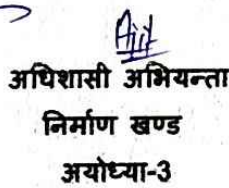 अधिशासी अभियन्ता
निर्माण खण्ड
अयोध्या-3